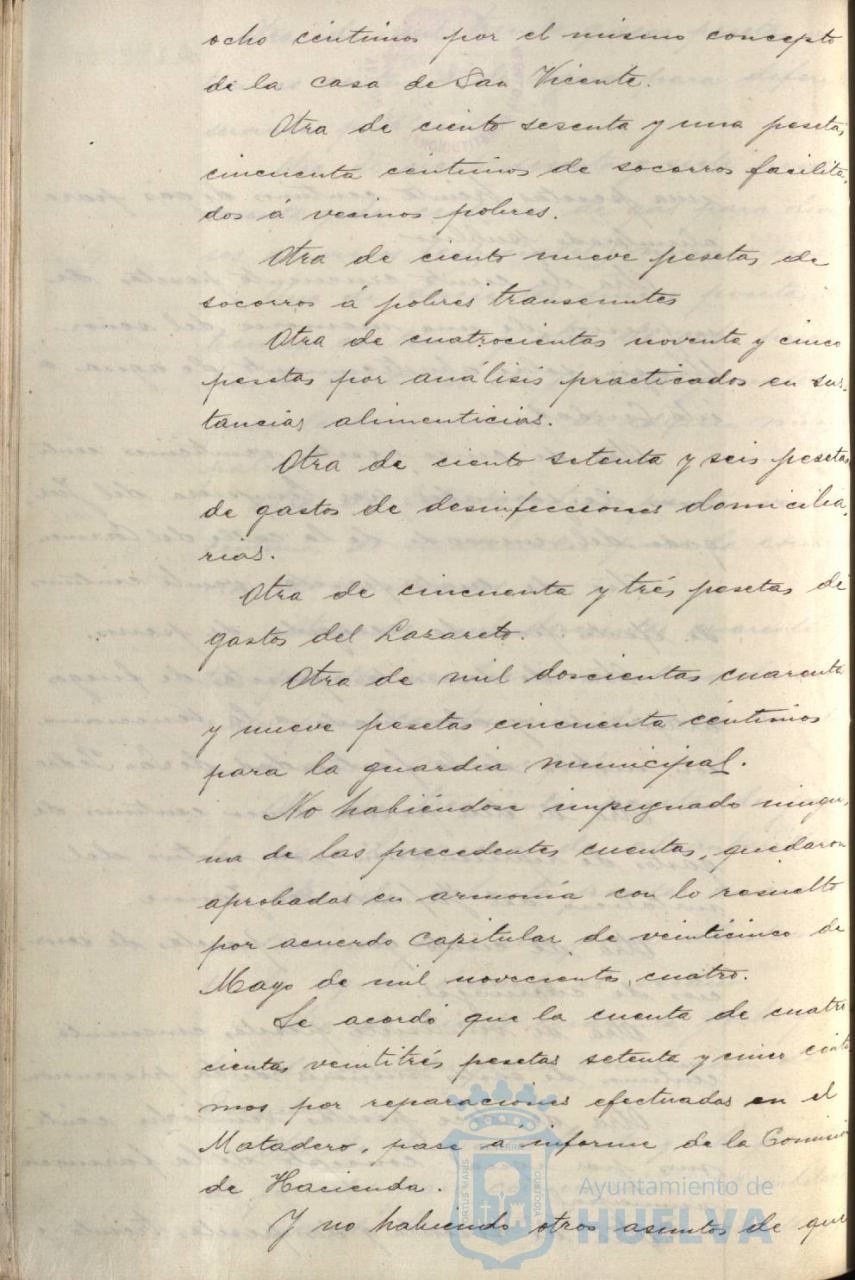 ocho céntimos por el mismo concepto
de la casa de San Vicente.
Otra de ciento sesenta y una pesetas
cincuenta centimos de socorros facilita-
dos á vecinos pobres.
Otra de ciento nueve pesetas de
socorros á pobres transeuntes
Otra de cuatrocientas noventa y cinco
pesetas por análisis practicados en sus-
tancias alimenticias.
Otra de ciento setenta y seis pesetas
de gastos de desinfecciones domicilia-
rias.
Otra de cincuenta y trés pesetas de
gastos del Lazareto.
Otra de mil doscientas cuarenta
y nueve pesetas cincuenta céntimos
para la guardia municipal.
No habiéndose impugnado ningu-
na de las precedentes cuentas, quedaron
aprobadas en armonía con lo resuelto
por acuerdo Capitular de veinticinco de
Mayo de mil novecientos cuatro.
Se acordó que la cuenta de cuatro
cientas veintitrés pesetas setenta y cinco cénti
mos por reparaciones efectuadas en el
Matadero, pase á informe de la Comisión
de Hacienda.
Y no habiendo otros asuntos de que
Ayuntamiento de
HUELVA